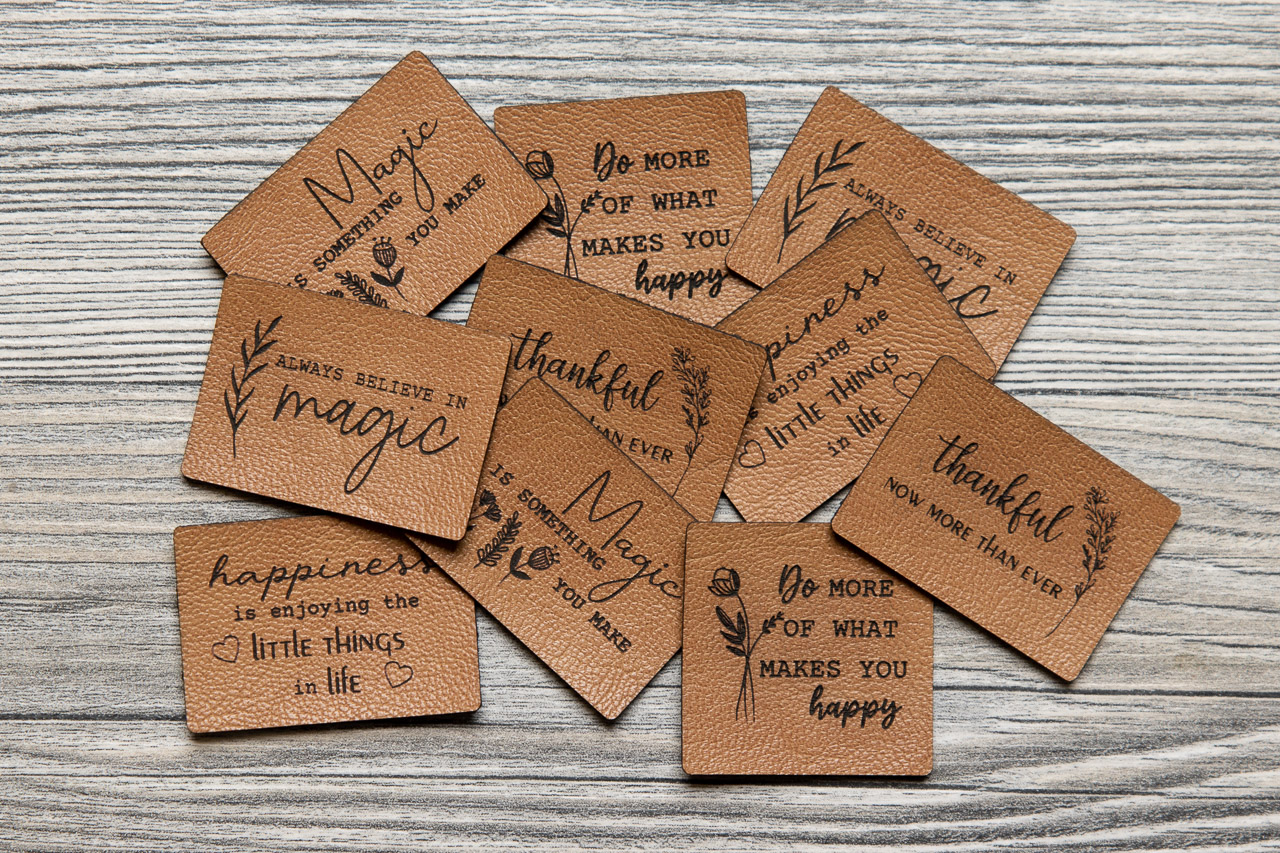 Magic
IS SOMETHING
YOU MAKE
Do MORE
OF WHAT
MAKES YOU
happy
ALWAYS BELIEVE IN
ALWAYS BELIEVE IN
magic
thankful
THAN EVER
enjoying the
LITTLE THINGS
in life
thankful
NOW MORE THAN EVER
Magic
IS SOMETHING
YOU MAKE
happiness
is enjoying the
LITTLE THINGS
in life
Do MORE
OF WHAT
MAKES YOU
happy